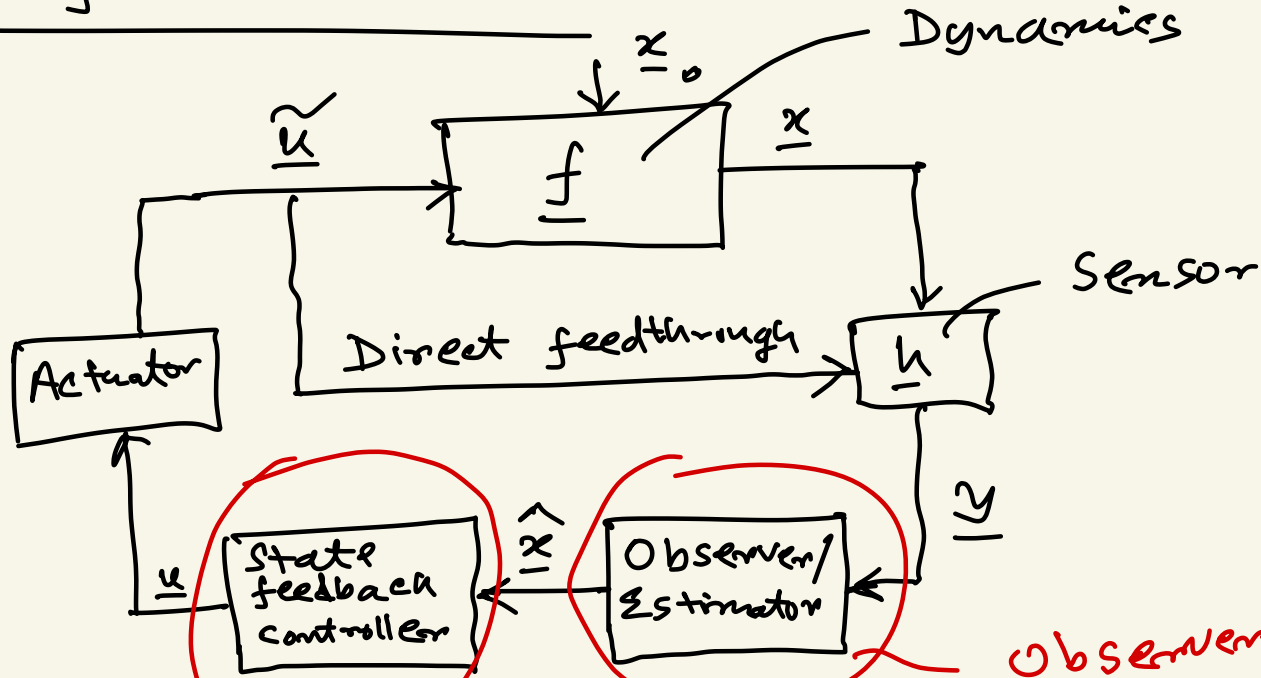 x₀
Dynamics
ũ
f
x
Sensor
Direct feedthrough
h
Actuator
y
State
feedback
controller
x̂
Observer/
Estimator
u
Observer